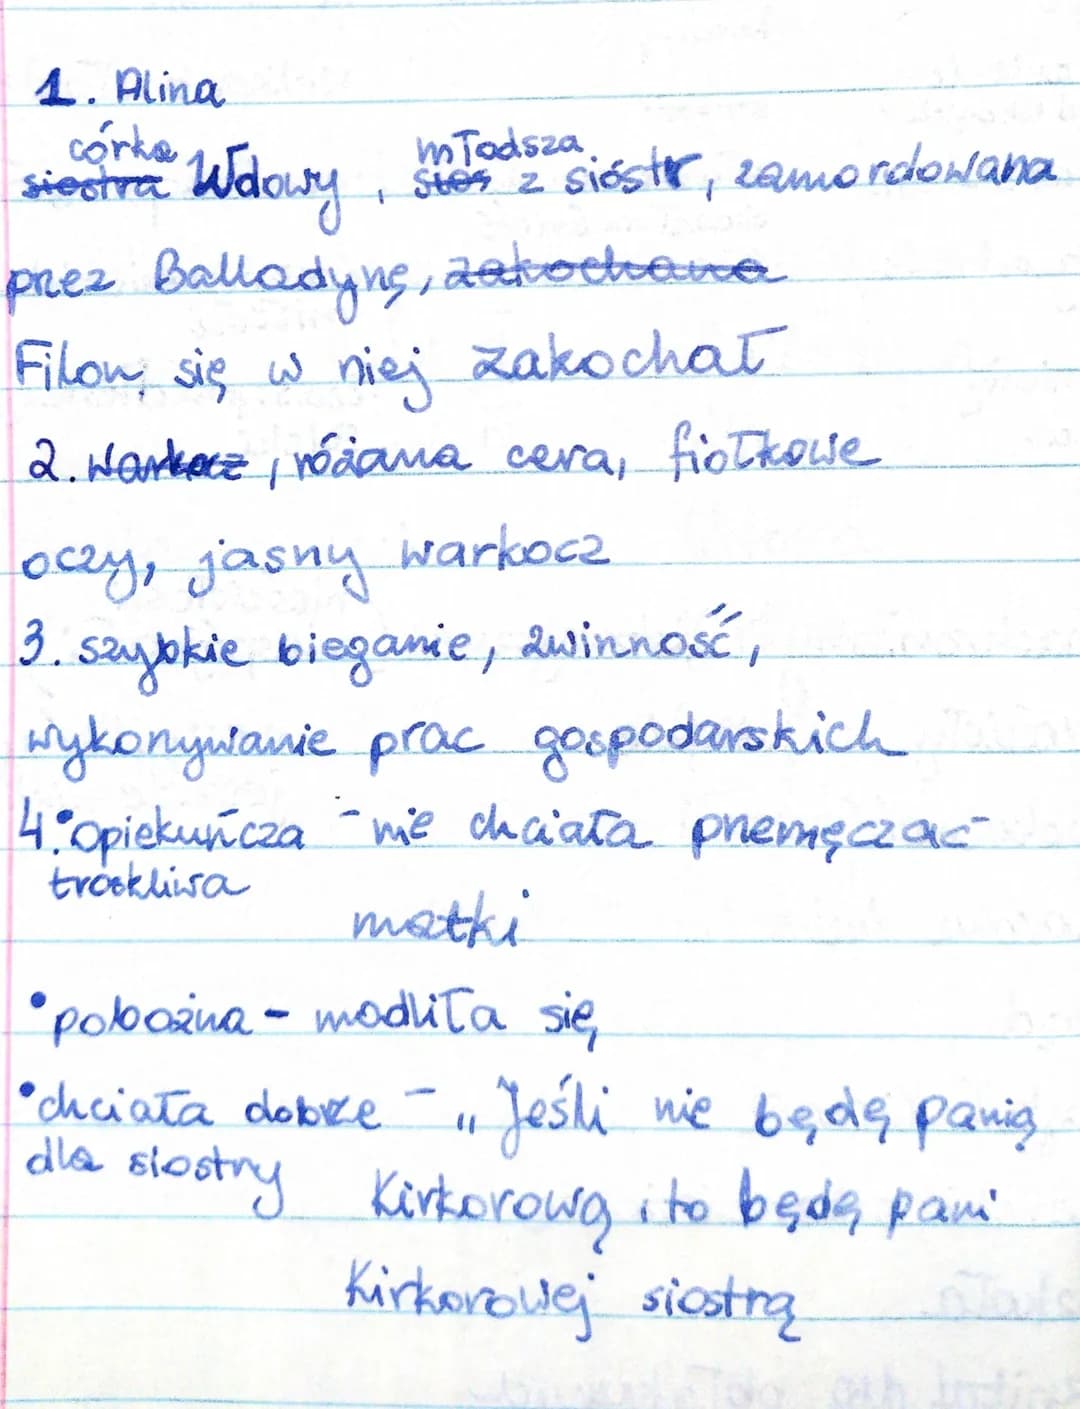 1. Alina
córka młodsza
siostra Wdowy, sios z sióstr, zamordowana
przez Balladynę, zakochana
Filon się w niej zakochał
2. warkocz, różana cera, fiołkowe
oczy, jasny warkocz
3. szybkie bieganie, zwinność,
wykonywanie prac gospodarskich
4. •opiekuńcza - nie chciała przemęczać
troskliwa
matki
•pobożna - modliła się
•chciała dobrze - „Jeśli nie będę panią
dla siostry
Kirkorową, to będę pani
Kirkorowej siostrą